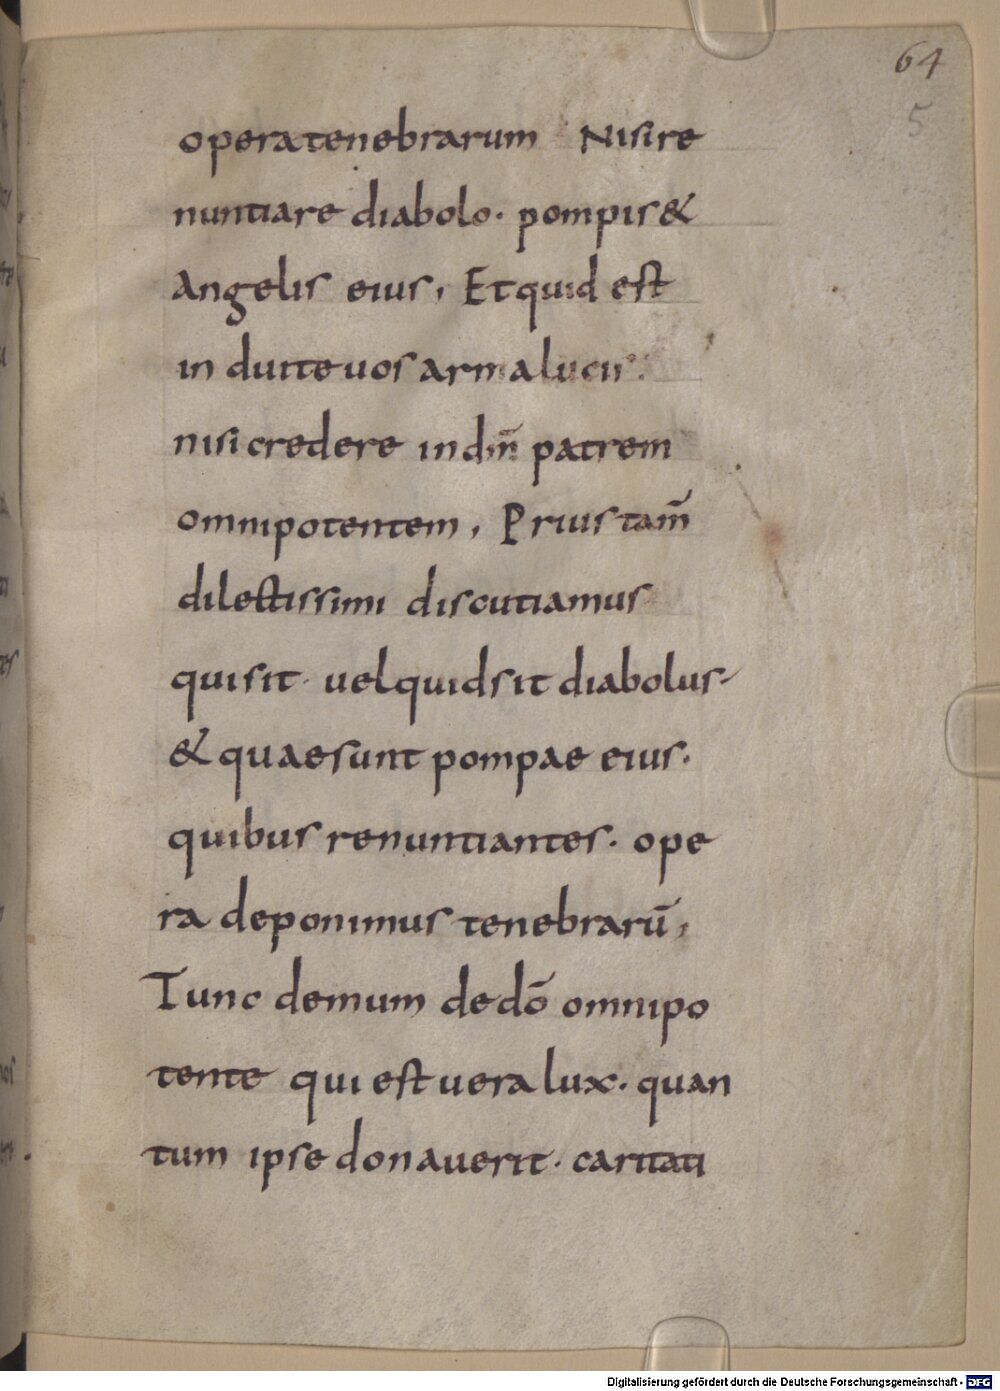 64
5
opera tenebrarum Nisi re
nuntiare diabolo· pompis &
Angelis eius, Et quid est
in duite uos arma lucis·
nisi credere in dm̄ patrem
omnipotentem, Prius tam̄
dilectissimi discutiamus
qui sit· uel quid sit diabolus·
& quae sunt pompae eius·
quibus renuntiantes· ope
ra deponimus tenebrarū,
Tunc demum de dō omnipo
tente qui est uera lux· quan
tum ipse donauerit· caritati
Digitalisierung gefördert durch die Deutsche Forschungsgemeinschaft - DFG